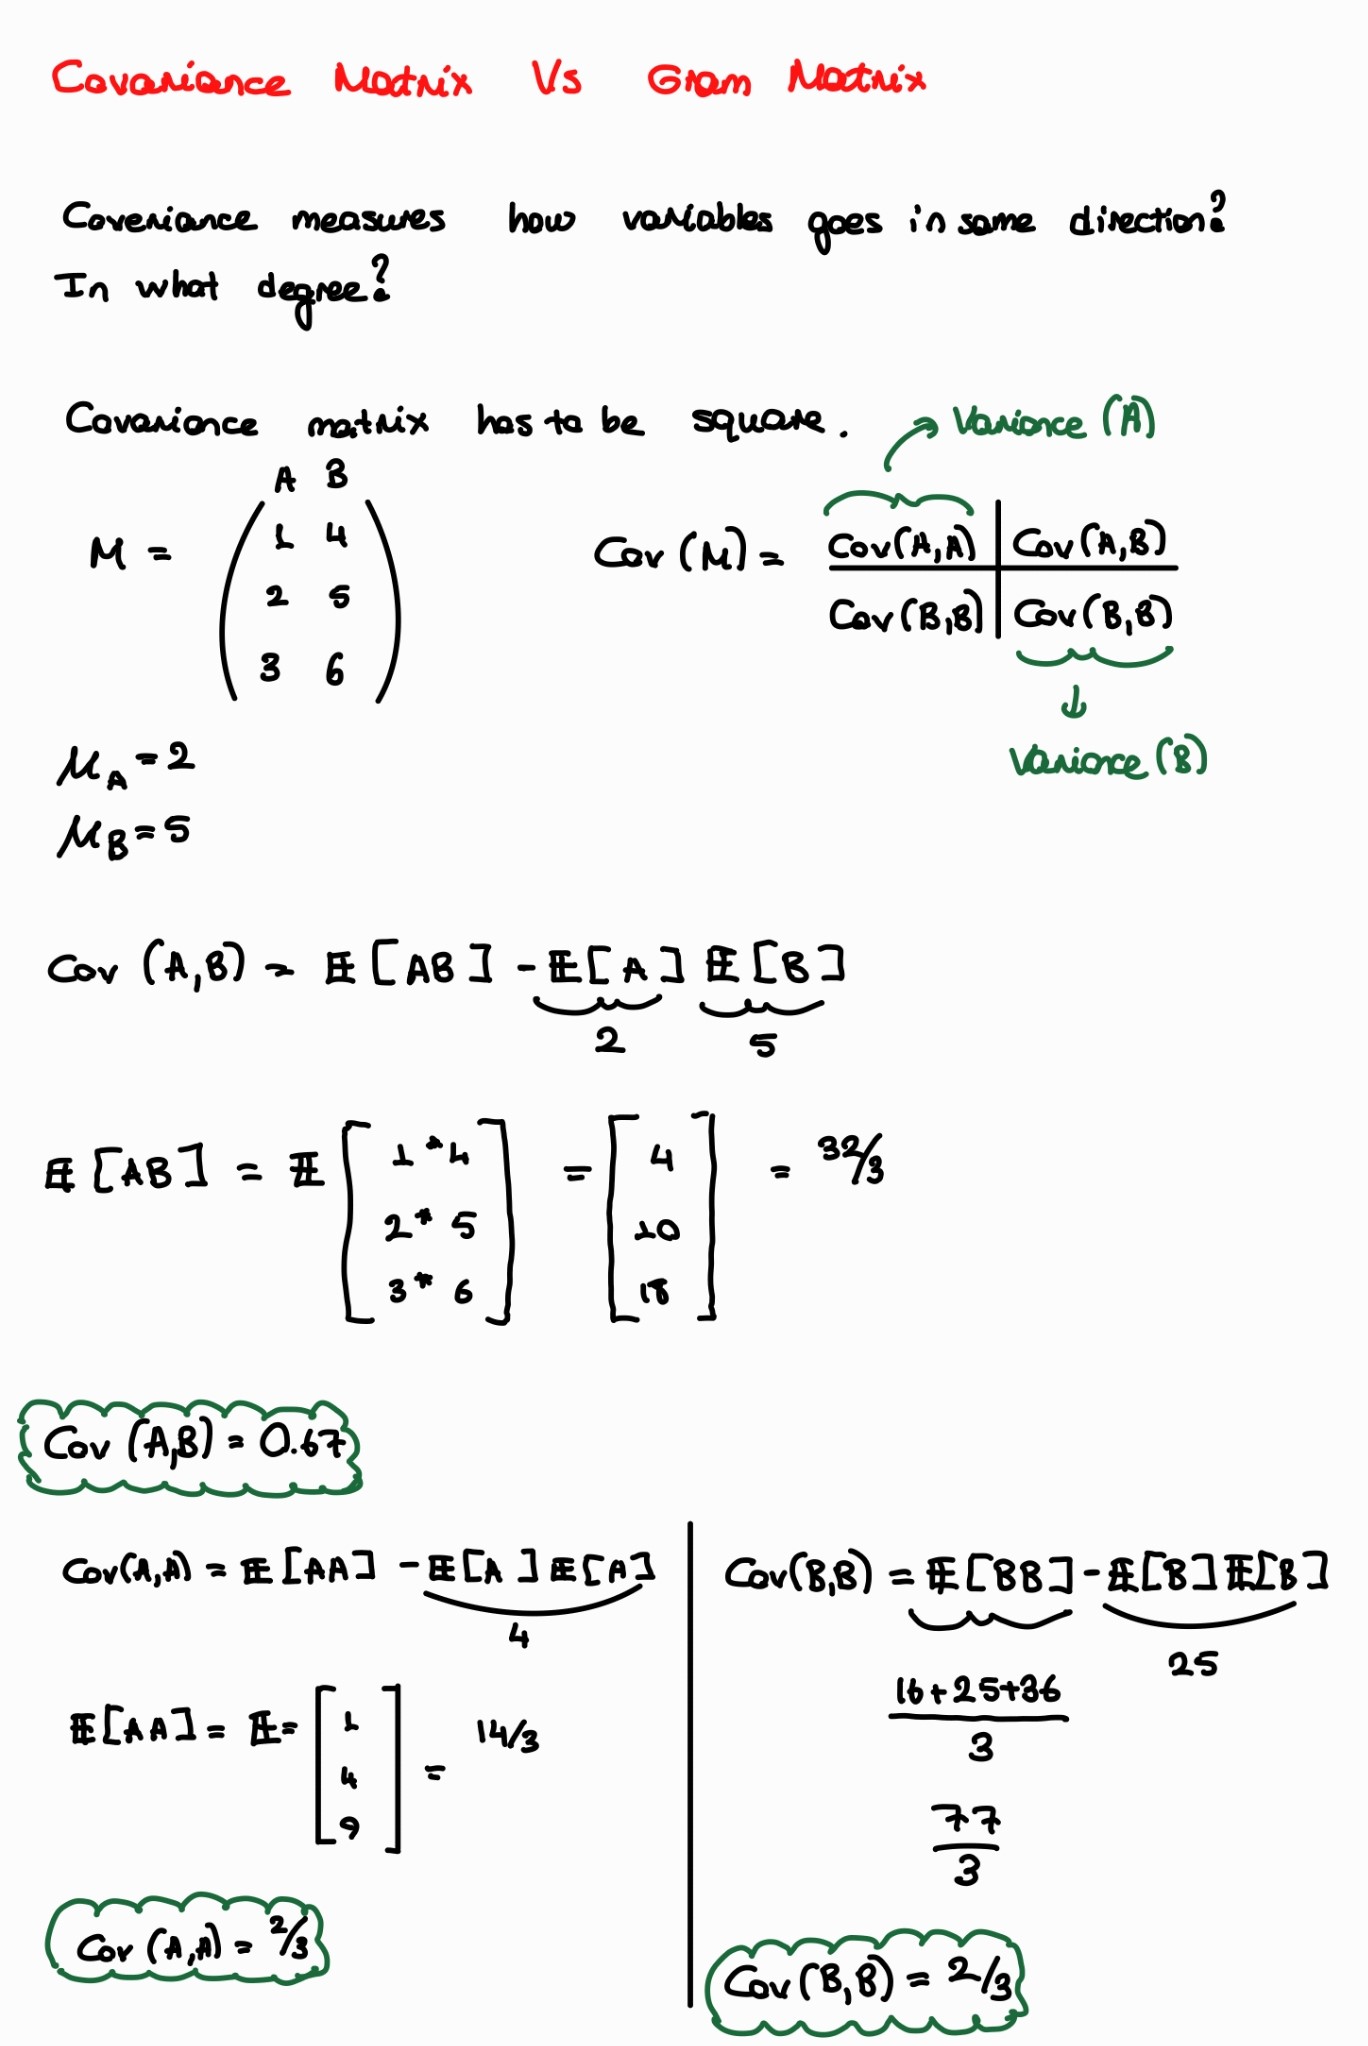 Covariance Matrix Vs Gram Matrix
Coveriance measures how variables goes in same direction?
In what degree?
Covariance matrix has to be square.
Variance (A)
A B
M = ( 1 4
2 5
3 6 )
Cov (M) = Cov(A,A) | Cov(A,B)
Cov(B,B) | Cov(B,B)
Variance (B)
μA = 2
μB = 5
Cov (A,B) = E [AB] - E[A] E[B]
2 5
E [AB] = E [ 1 * 4
2 * 5
3 * 6 ] = [ 4
10
18 ] = 32/3
Cov (A,B) = 0.67
Cov(A,A) = E [AA] - E[A] E[A]
4
E[AA] = E= [ 1
4
9 ] = 14/3
Cov (A,A) = 2/3
Cov(B,B) = E[BB] - E[B] E[B]
25
16+25+36
3
77
3
Cov (B,B) = 2/3